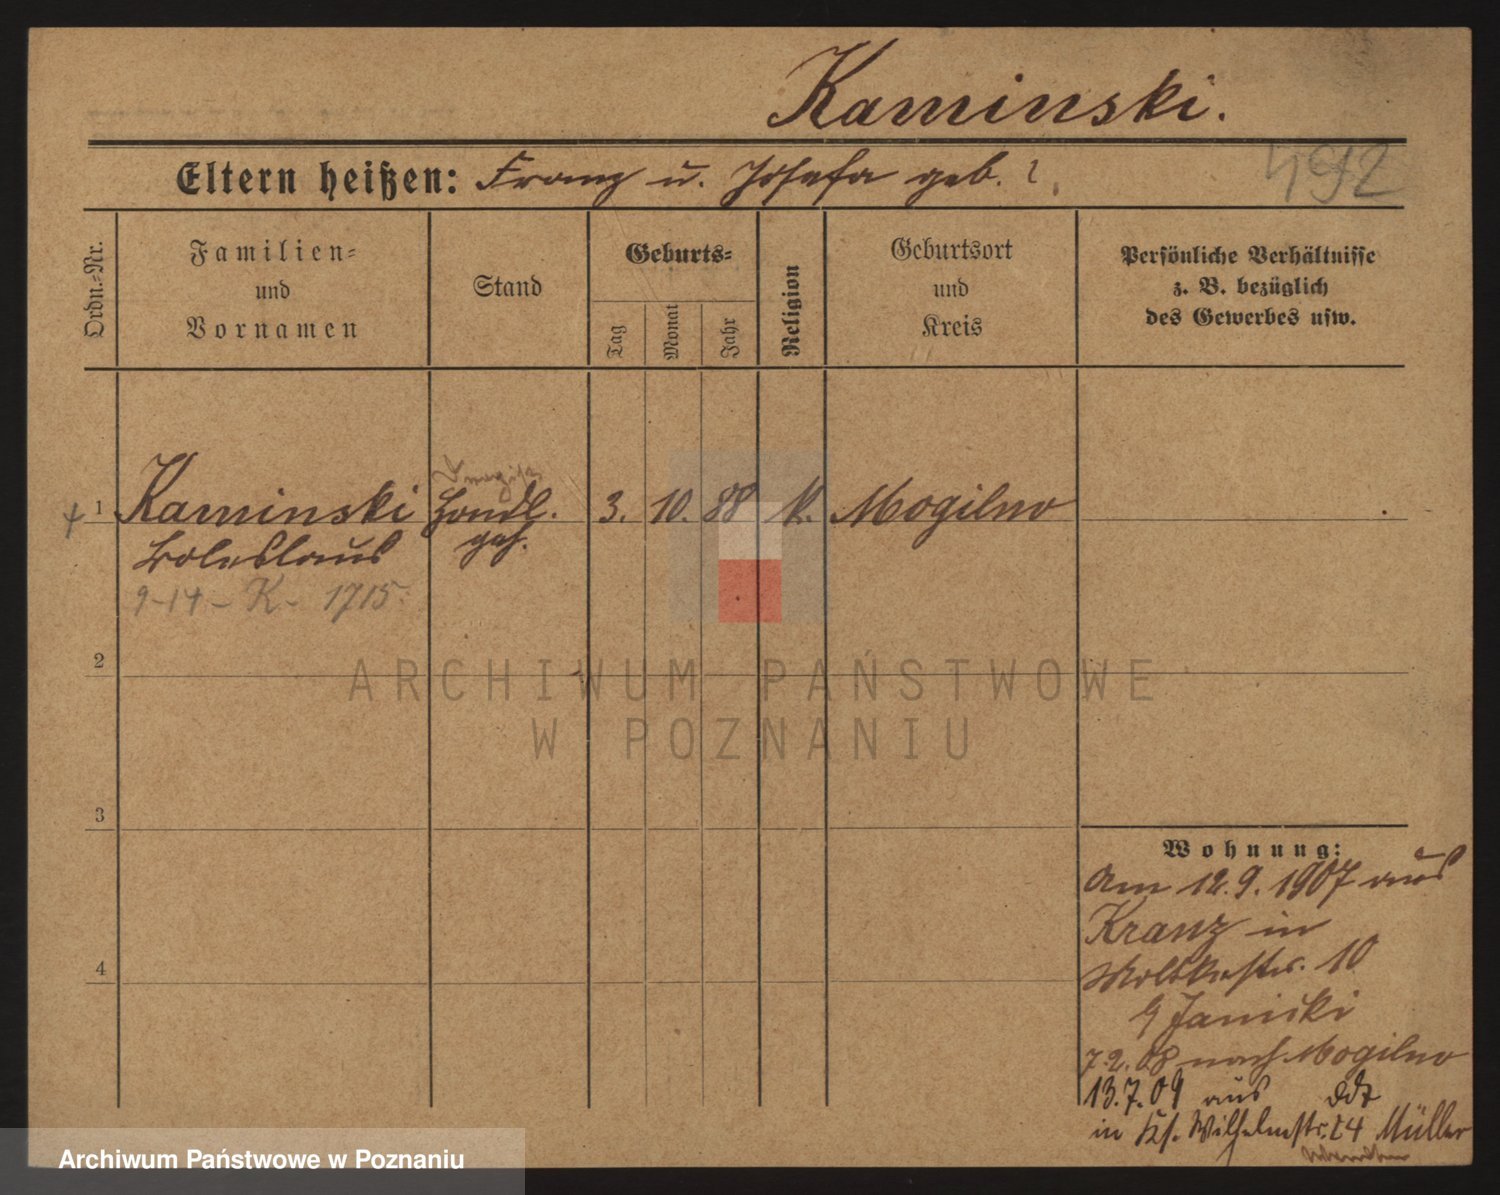 Kaminski.
Eltern heißen: Franz u. Josefa geb. ?
492
Ordn.-Nr.
Familien=
und
Vornamen
Stand
Geburts=
Tag
Monat
Jahr
Religion
Geburtsort
und
Kreis
Persönliche Verhältnisse
z. B. bezüglich
des Gewerbes usw.
1
Kaminski
Boleslaus
9-14-K-1715.
Handl.
geh.
3. 10. 88 K. Mogilno
2
ARCHIWUM PAŃSTWOWE
W POZNANIU
3
4
Wohnung:
Am 12.9.1907 aus
Kranz in
Moltkestr. 10
Janicki
7.2.08 nach Mogilno
13.7.09 aus
in Wilhelmstr. 24 Müller
Archiwum Państwowe w Poznaniu